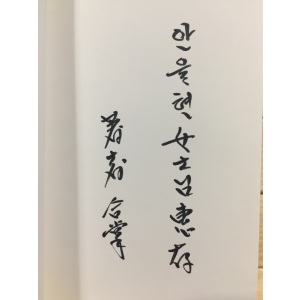 안을현 女士님 惠存
合掌